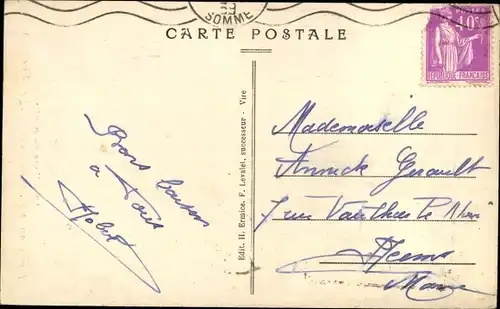 SOMME
CARTE POSTALE
40c
REPUBLIQUE FRANÇAISE
Bons baisers
a Tous
Edit. H. Ermice, F. Levalet, successeur - Vire
Mademoiselle
Annick Gerault
7 rue Vauthier le
Reims
Marne